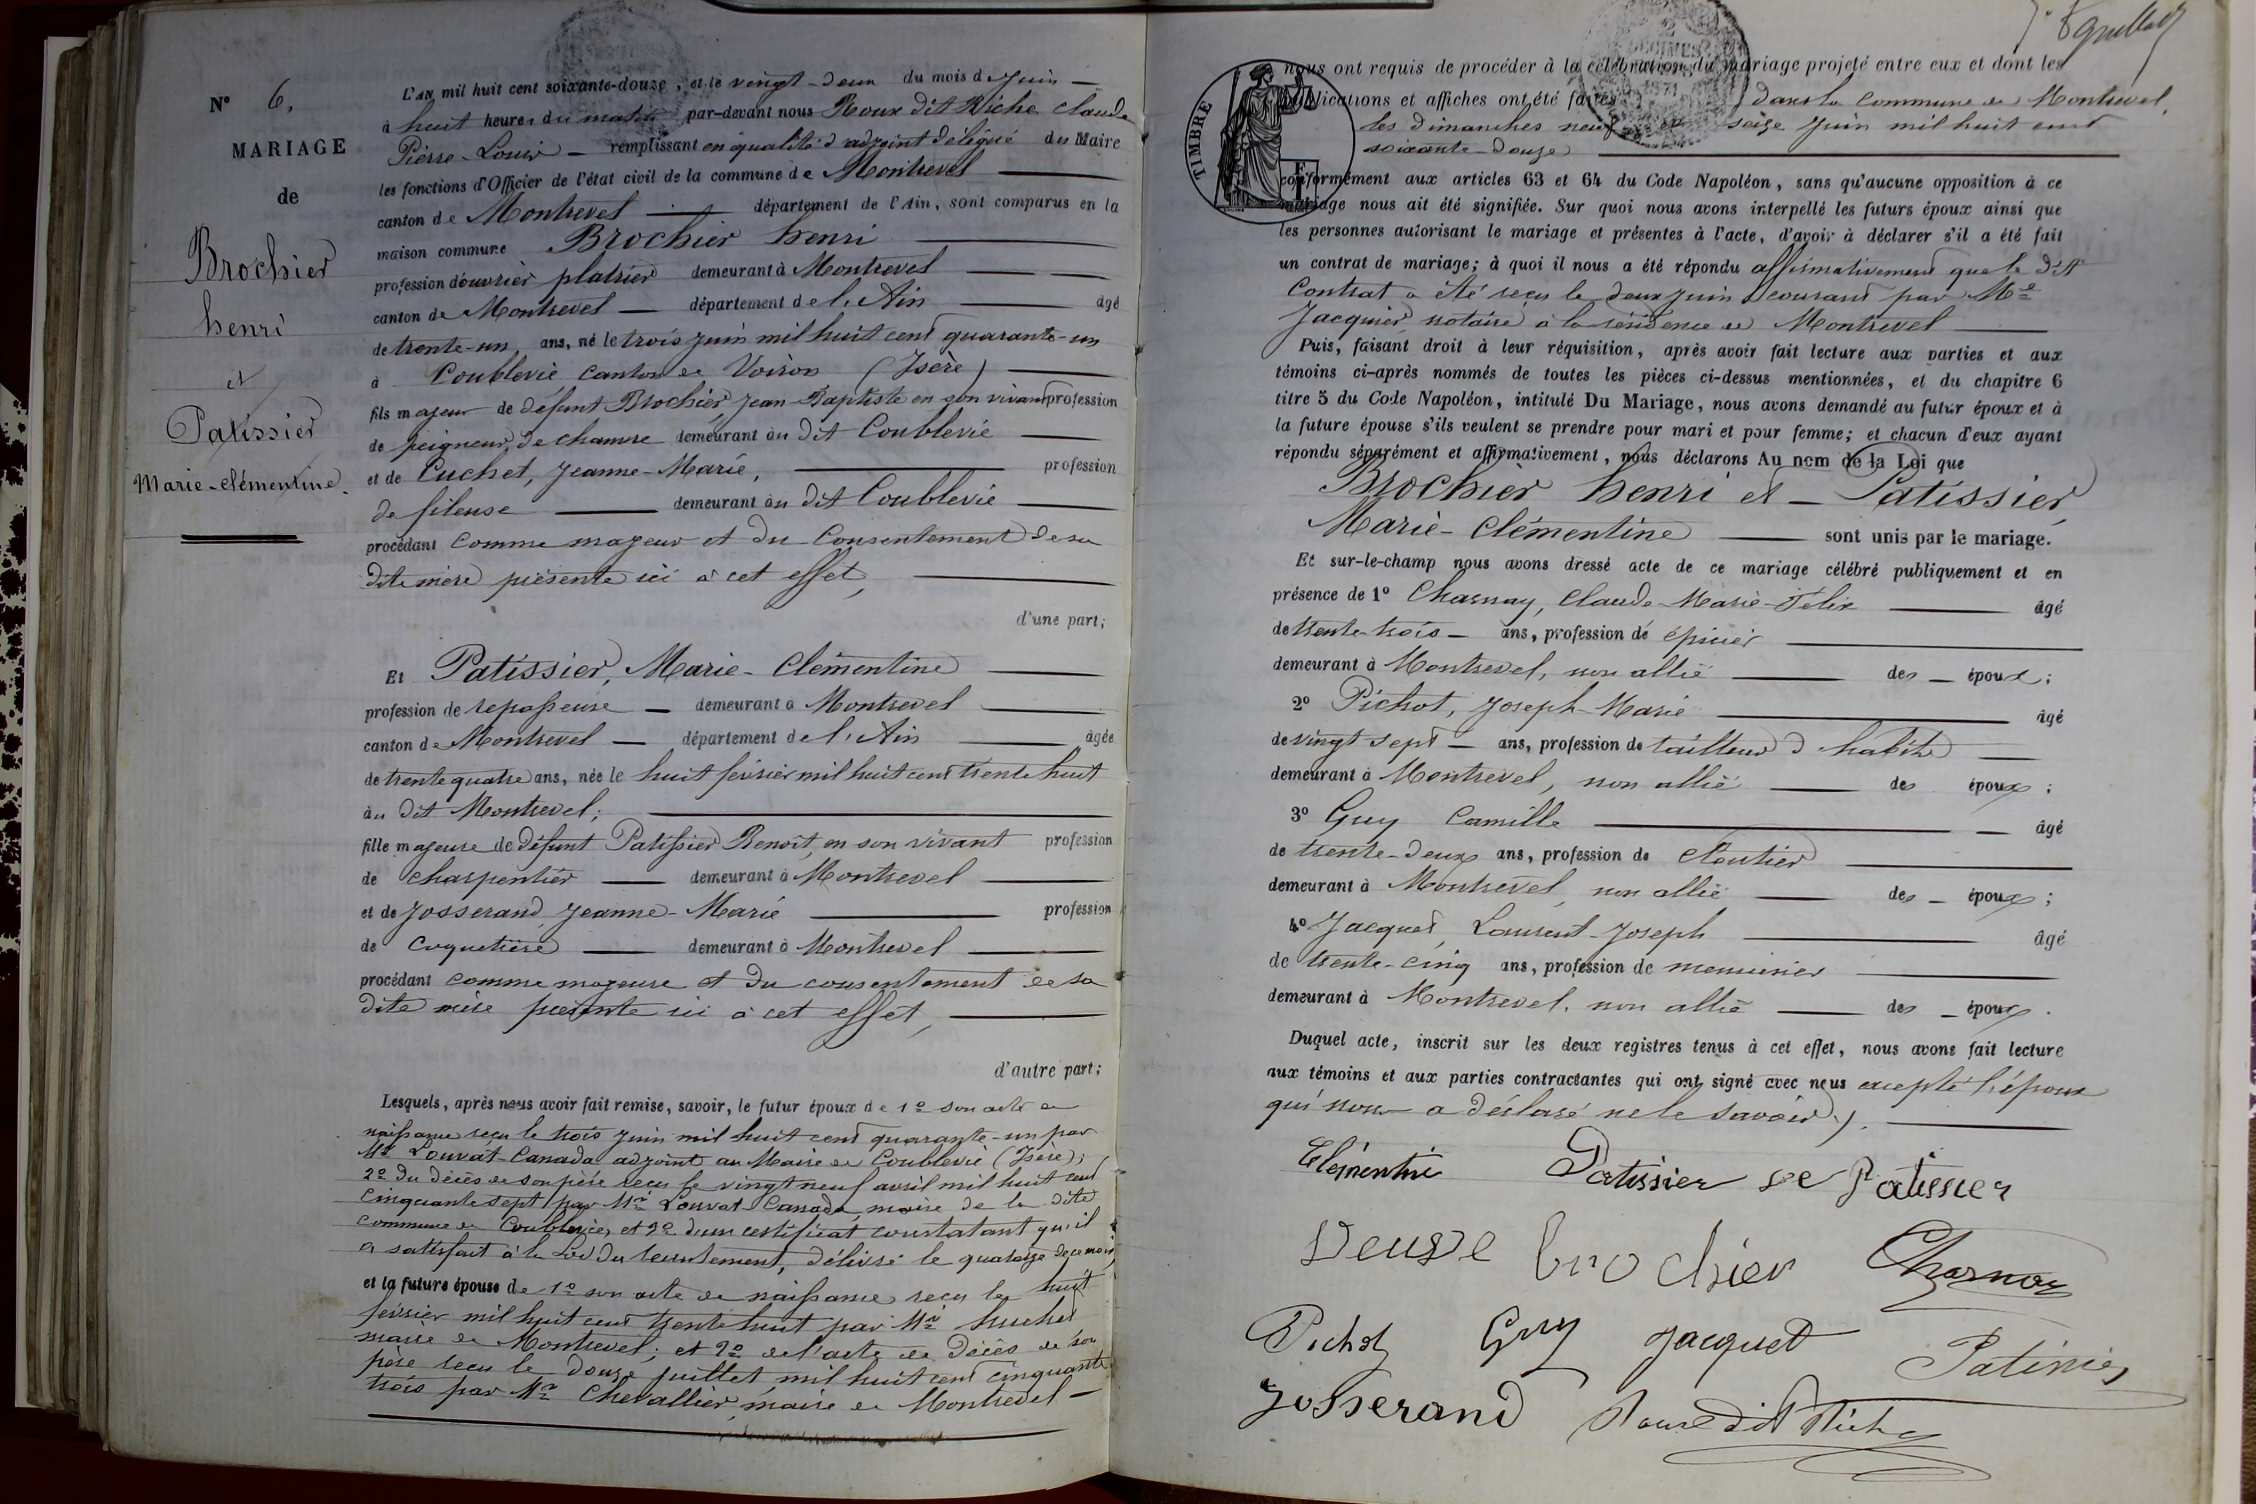 N° 6.
MARIAGE
de
Brochier
henri
et
Patissier
Marie-clémentine.
L'an mil huit cent soixante-douze, et le vingt-deux du mois de Juin
à huit heures du matin par-devant nous Roux dit Riche Claude
Pierre-Louis remplissant en qualité d'adjoint délégué du Maire
les fonctions d'Officier de l'état civil de la commune de Montrevel
canton de Montrevel département de l'Ain, sont comparus en la
maison commune Brochier henri
profession d'ouvrier platrier demeurant à Montrevel
canton de Montrevel département de l'Ain âgé
de trente-un ans, né le trois juin mil huit cent quarante-un
à Coublevie canton de Voiron (Isère)
fils majeur de défunt Brochier, Jean-Baptiste en son vivant profession
de peigneur de chanvre demeurant au dit Coublevie
et de Cuchet, Jeanne-Marie, profession
de fileuse demeurant au dit Coublevie
procédant comme majeur et du Consentement de sa
dite mère présente ici à cet effet,
d'une part;
Et Patissier, Marie-Clémentine
profession de repasseuse demeurant à Montrevel
canton de Montrevel département de l'Ain âgée
de trente quatre ans, née le huit février mil huit cent trente huit
au dit Montrevel;
fille majeure de défunt Patissier Benoît, en son vivant profession
de charpentier demeurant à Montrevel
et de Josserand, Jeanne-Marie profession
de coquetière demeurant à Montrevel
procédant comme majeure et du consentement de sa
dite mère présente ici à cet effet,
d'autre part;
Lesquels, après nous avoir fait remise, savoir, le futur époux de 1° son acte de
naissance reçu le trois juin mil huit cent quarante-un par
Mr Louvat-Canada adjoint au Maire de Coublevie (Isère);
2° du décès de son père reçu le vingt neuf avril mil huit cent
cinquante sept par Mr Louvat-Canada, maire de la dite
commune de Coublevie, et 3° d'un certificat constatant qu'il
a satisfait à la Loi du recrutement, délivré le quatorze de ce mois,
et la future épouse de 1° son acte de naissance reçu le huit
février mil huit cent trente huit par Mr huchet
maire de Montrevel; et 2° de l'acte de décès de son
père reçu le douze juillet mil huit cent cinquante
trois par Mr Chevallier, maire de Montrevel
TIMBRE
nous ont requis de procéder à la célébration du mariage projeté entre eux et dont les
publications et affiches ont été faites dans la Commune de Montrevel,
les dimanches neuf et seize Juin mil huit cent
soixante-douze
conformément aux articles 63 et 64 du Code Napoléon, sans qu'aucune opposition à ce
mariage nous ait été signifiée. Sur quoi nous avons interpellé les futurs époux ainsi que
les personnes autorisant le mariage et présentes à l'acte, d'avoir à déclarer s'il a été fait
un contrat de mariage; à quoi il nous a été répondu affirmativement que le dit
Contrat a été reçu le deux juin courant par Me
Jacquier, notaire à la résidence de Montrevel
Puis, faisant droit à leur réquisition, après avoir fait lecture aux parties et aux
témoins ci-après nommés de toutes les pièces ci-dessus mentionnées, et du chapitre 6
titre 5 du Code Napoléon, intitulé Du Mariage, nous avons demandé au futur époux et à
la future épouse s'ils veulent se prendre pour mari et pour femme; et chacun d'eux ayant
répondu séparément et affirmativement, nous déclarons Au nom de la Loi que
Brochier henri et Patissier,
Marie-Clémentine sont unis par le mariage.
Et sur-le-champ nous avons dressé acte de ce mariage célébré publiquement et en
présence de 1° Charnay, Claude-Marie-Félix âgé
de trente-trois ans, profession de épicier
demeurant à Montrevel, non allié des époux;
2° Pichot, Joseph-Marie âgé
de vingt sept ans, profession de tailleur d'habits
demeurant à Montrevel, non allié des époux;
3° Guy Camille âgé
de trente-deux ans, profession de cloutier
demeurant à Montrevel, non allié des époux;
4° Jacquet, Laurent-Joseph âgé
de trente-cinq ans, profession de menuisier
demeurant à Montrevel, non allié des époux.
Duquel acte, inscrit sur les deux registres tenus à cet effet, nous avons fait lecture
aux témoins et aux parties contractantes qui ont signé avec nous excepté l'époux
qui nous a déclaré ne le savoir.
Clémentine Patissier
veuve brochier Charnay
Pichot Guy Jacquet Patissier
Josserand Roux dit Riche